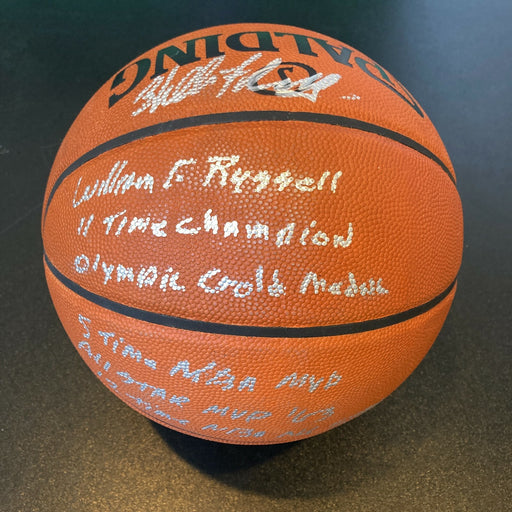 SPALDING
William F. Russell
11 Time Champion
Olympic Gold Medal
5 Time NBA MVP
All-STAR MVP
Time